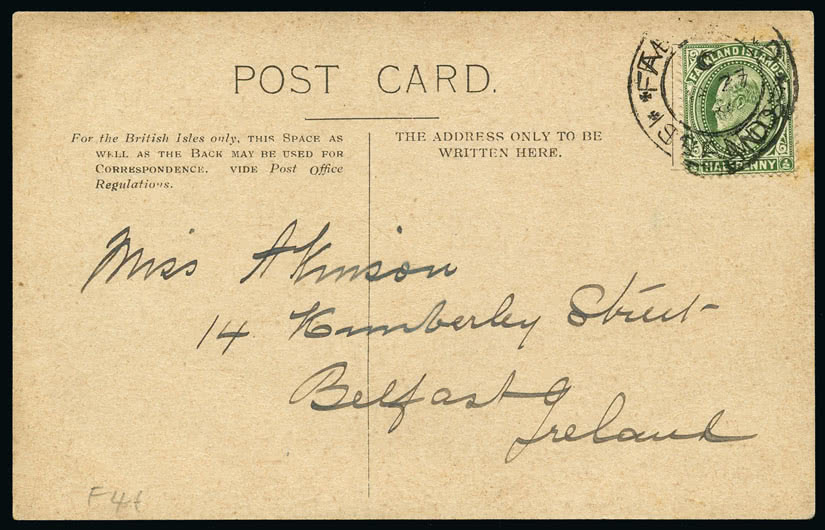 POST CARD.
For the British Isles only, THIS SPACE AS
WELL AS THE BACK MAY BE USED FOR
CORRESPONDENCE. VIDE Post Office
Regulations.
THE ADDRESS ONLY TO BE
WRITTEN HERE.
FALKLAND ISLANDS
HALFPENNY
Miss Atkinson
14 Kimberley Street
Belfast
Ireland
F4t